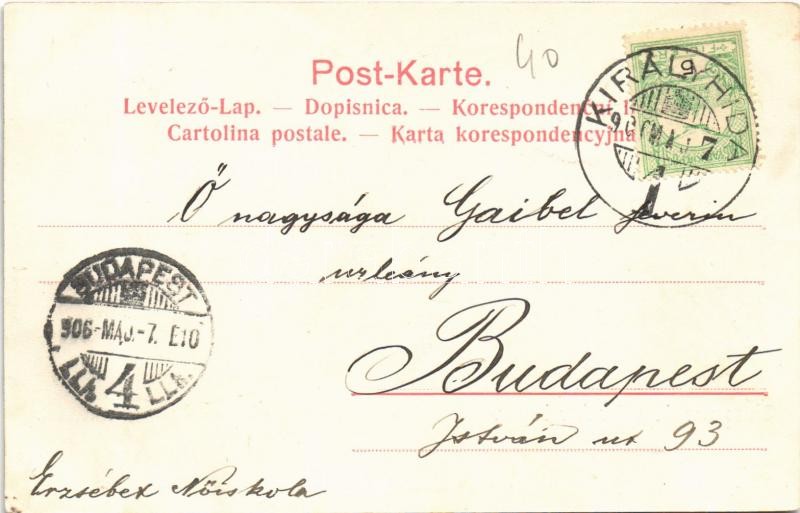 40
Post-Karte.
Levelező-Lap. — Dopisnica. — Korespondenční
Cartolina postale. — Karta korespondencyjna
KIRÁLYHIDA
906 MÁJ 7
Ő nagysága Gaibel Severin
urleány
Budapest
István ut 93
BUDAPEST
906-MÁJ.-7. E10
4
Erzsébet Nőiskola